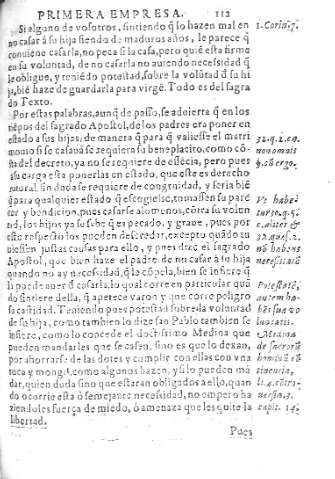 PRIMERA EMPRESA. 112
Si alguno de vosotros, sintiendo q̃ lo hazen mal en
no casar â su hija siendo de maduros años, le parece q̃
conuiene casarla, no peca si la casa, pero quiẽ esta firme
en su voluntad, de no casarla no auiendo necessidad q̃
le obligue, y teniẽdo potestad, sobre la volũtad d̃ su hi
ja, biẽ haze de guardarla para virgẽ. Todo es del sagra
do Texto.
Por estas palabras, aunq̃ de passo, se aduierta q̃ en los
tiẽpos del sagrado Apostol, de los padres era poner en
estado a sus hijas; de manera q̃ para q̃ valiesse el matri
monio si se casauã se requiria su beneplacito, como cõ-
sta del decreto, ya no se requiere de essẽcia, pero pues
su carga esta ponerlas en estado, que este es derecho
natural, sin duda se requiere de congruidad, y seria biẽ
q̃ para qualquier estado q̃ escogiesse, tomassen su pare
cer y bendicion, pues casarse alomenos, cõtra su volun
tad, los hijos ya se sabe q̃ es pecado, y graue, pues por
este respecto los pueden desheredar, excepto quãdo tu
uiessen justas causas para ello, y pues dize el sagrado
Apostol, que bien haze el padre de no casar â su hija
quando no ay necessidad, q̃ la cõpela, bien se infiere q̃
li puede auer d̃ casarla, lo qual corre en particular quã
do sintiere della, q̃ apetece varon y que corre peligro
su castidad. Teniendo pues potestad sobre la voluntad
de su hija, como tambien lo dize san Pablo tambien se
infiere, como lo concede el doctissimo Medina que
pueden mandarles que se casen, sino es que lo dexan,
por ahorrarse de las dotes y cumplir con ellas con vna
toca y mongil, como algunos hazen, y si lo pueden mã
dar, quien duda sino que estaran obligados a ello, quan
do ocurrie esta ô semejante necessidad, no empero ha
ziendoles fuerça de miedo, ô amenaza que les quite la
libertad.
Pues
1. Corint. 7.
32. q. 2. ca.
non omnis
§. cũ ergo.
necessitatẽ
Potestatẽ,
autem ha-
bẽs suæ vo
luntatis.
Medina
de sacrorũ
hominũ cõ
tinencia,
li. 4. cõtro-
uersia. 3.
capit. 14.